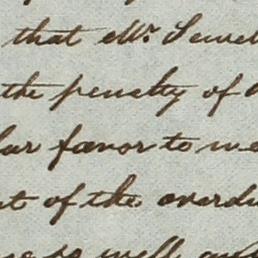 that Mr. Sewel
the penalty of
lar favor to me
t of the overdu
so well and